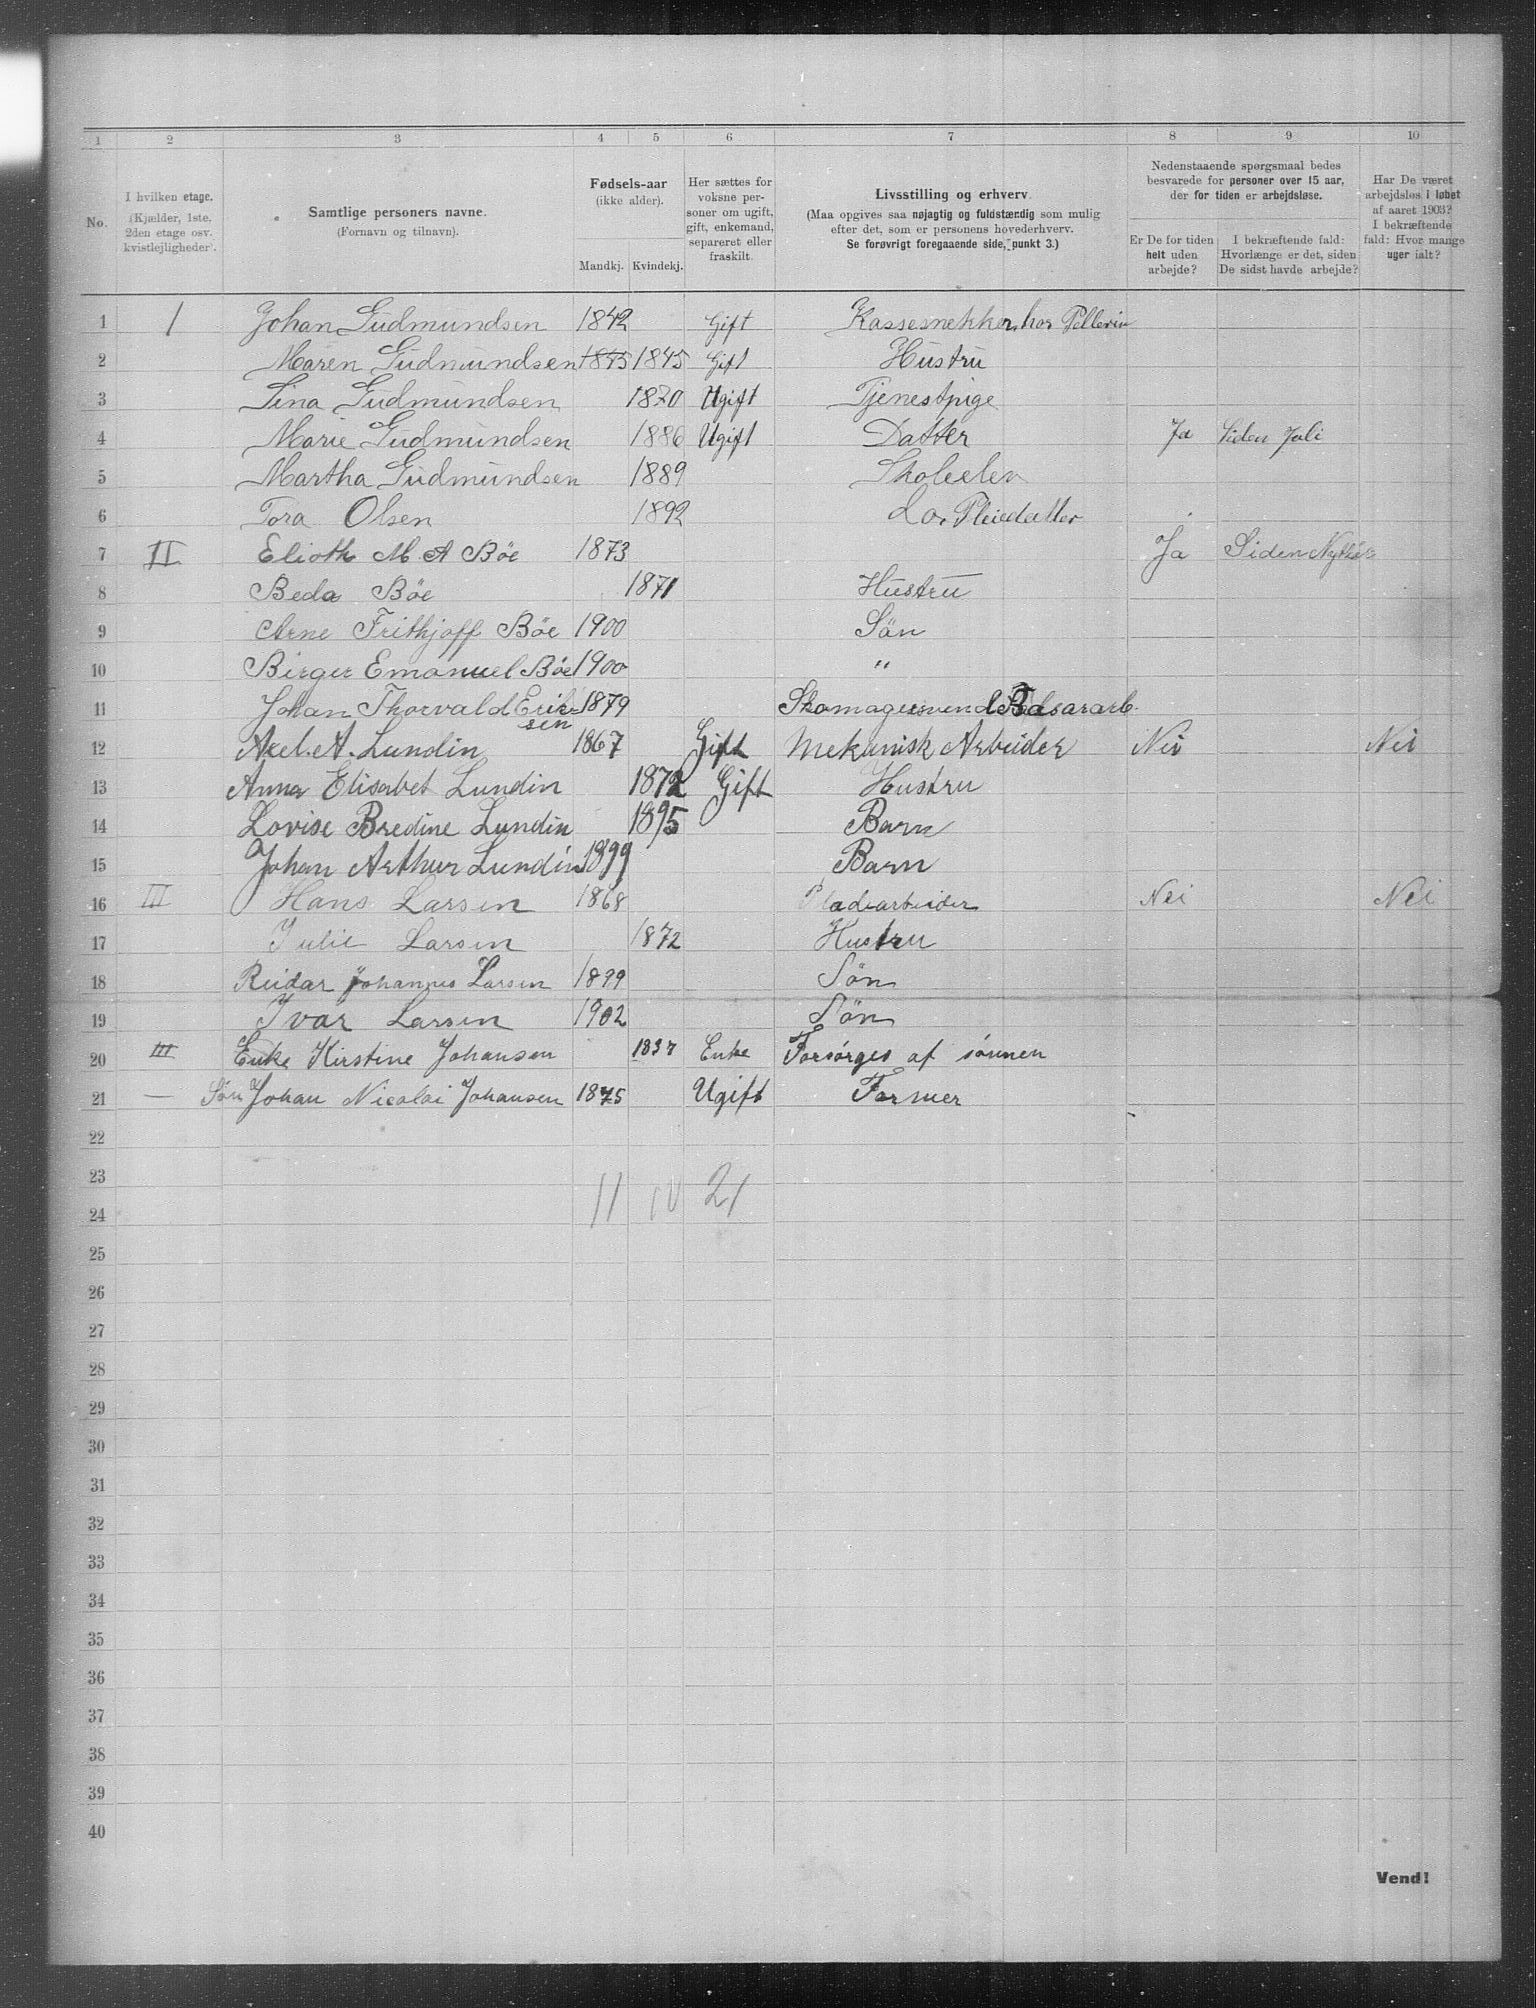 1 2 3 4 5 6 7 8 9 10
No.
I hvilken etage.
(Kjælder, 1ste. 2den etage osv. kvistlejligheder).
Samtlige personers navne.
(Fornavn og tilnavn).
Fødsels-aar
(ikke alder).
Mandkj. Kvindekj.
Her sættes for voksne personer om ugift, gift, enkemand, separeret eller fraskilt.
Livsstilling og erhverv.
(Maa opgives saa nøjagtig og fuldstændig som mulig efter det, som er personens hovederhverv.
Se forøvrigt foregaaende side, punkt 3.)
Nedenstaaende spørgsmaal bedes besvarede for personer over 15 aar, der for tiden er arbejdsløse.
Er De for tiden helt uden arbejde?
I bekræftende fald: Hvorlænge er det, siden De sidst havde arbejde?
Har De været arbejdsløs i løbet af aaret 1903? I bekræftende fald: Hvor mange uger ialt?
1 1 Johan Gudmundsen 1842 Gift Kassesnekker hos Pellerin
2 Maren Gudmundsen 1845 1845 Gift Hustru
3 Lina Gudmundsen 1870 Ugift Tjenestpige
4 Marie Gudmundsen 1886 Ugift Datter Ja Siden Juli
5 Martha Gudmundsen 1889 Skoleelev
6 Tora Olsen 1892 Do. Pleiedatter
7 II Elioth M A Böe 1873 Ja Siden Nytår
8 Beda Böe 1871 Hustru
9 Arne Frithjoff Böe 1900 Sön
10 Birger Emanuel Böe 1900 "
11 Johan Thorvald Eriksen 1879 Skomagersvend
12 Axel. A. Lundin 1867 Gift Mekanisk Arbeider Nei Nei
13 Anna Elisabet Lundin 1872 Gift Hustru
14 Lovise Bredine Lundin 1895 Barn
15 Johan Arthur Lundin 1899 Barn
16 III Hans Larsen 1868 Pladearbeider Nei Nei
17 Julie Larsen 1872 Hustru
18 Reidar Johannes Larsen 1899 Sön
19 Ivar Larsen 1902 Sön
20 III Enke Kirstine Johansen 1837 Enke Forsörges af sönnen
21 — Sön Johan Nicolai Johansen 1875 Ugift Former
22
23
11 10 21
24
25
26
27
28
29
30
31
32
33
34
35
36
37
38
39
40
Vend!